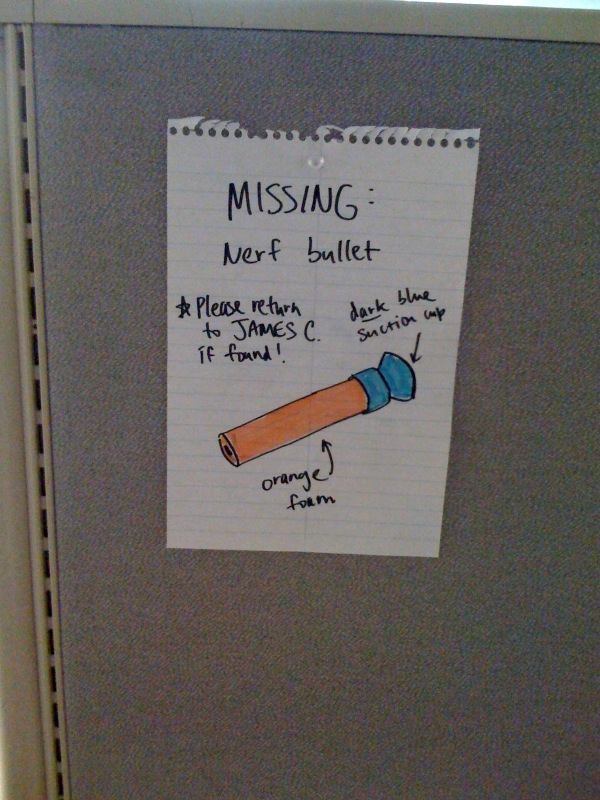 MISSING:
Nerf bullet
☆ Please return
to JAMES C.
if found!
dark blue
suction cup
orange
foam